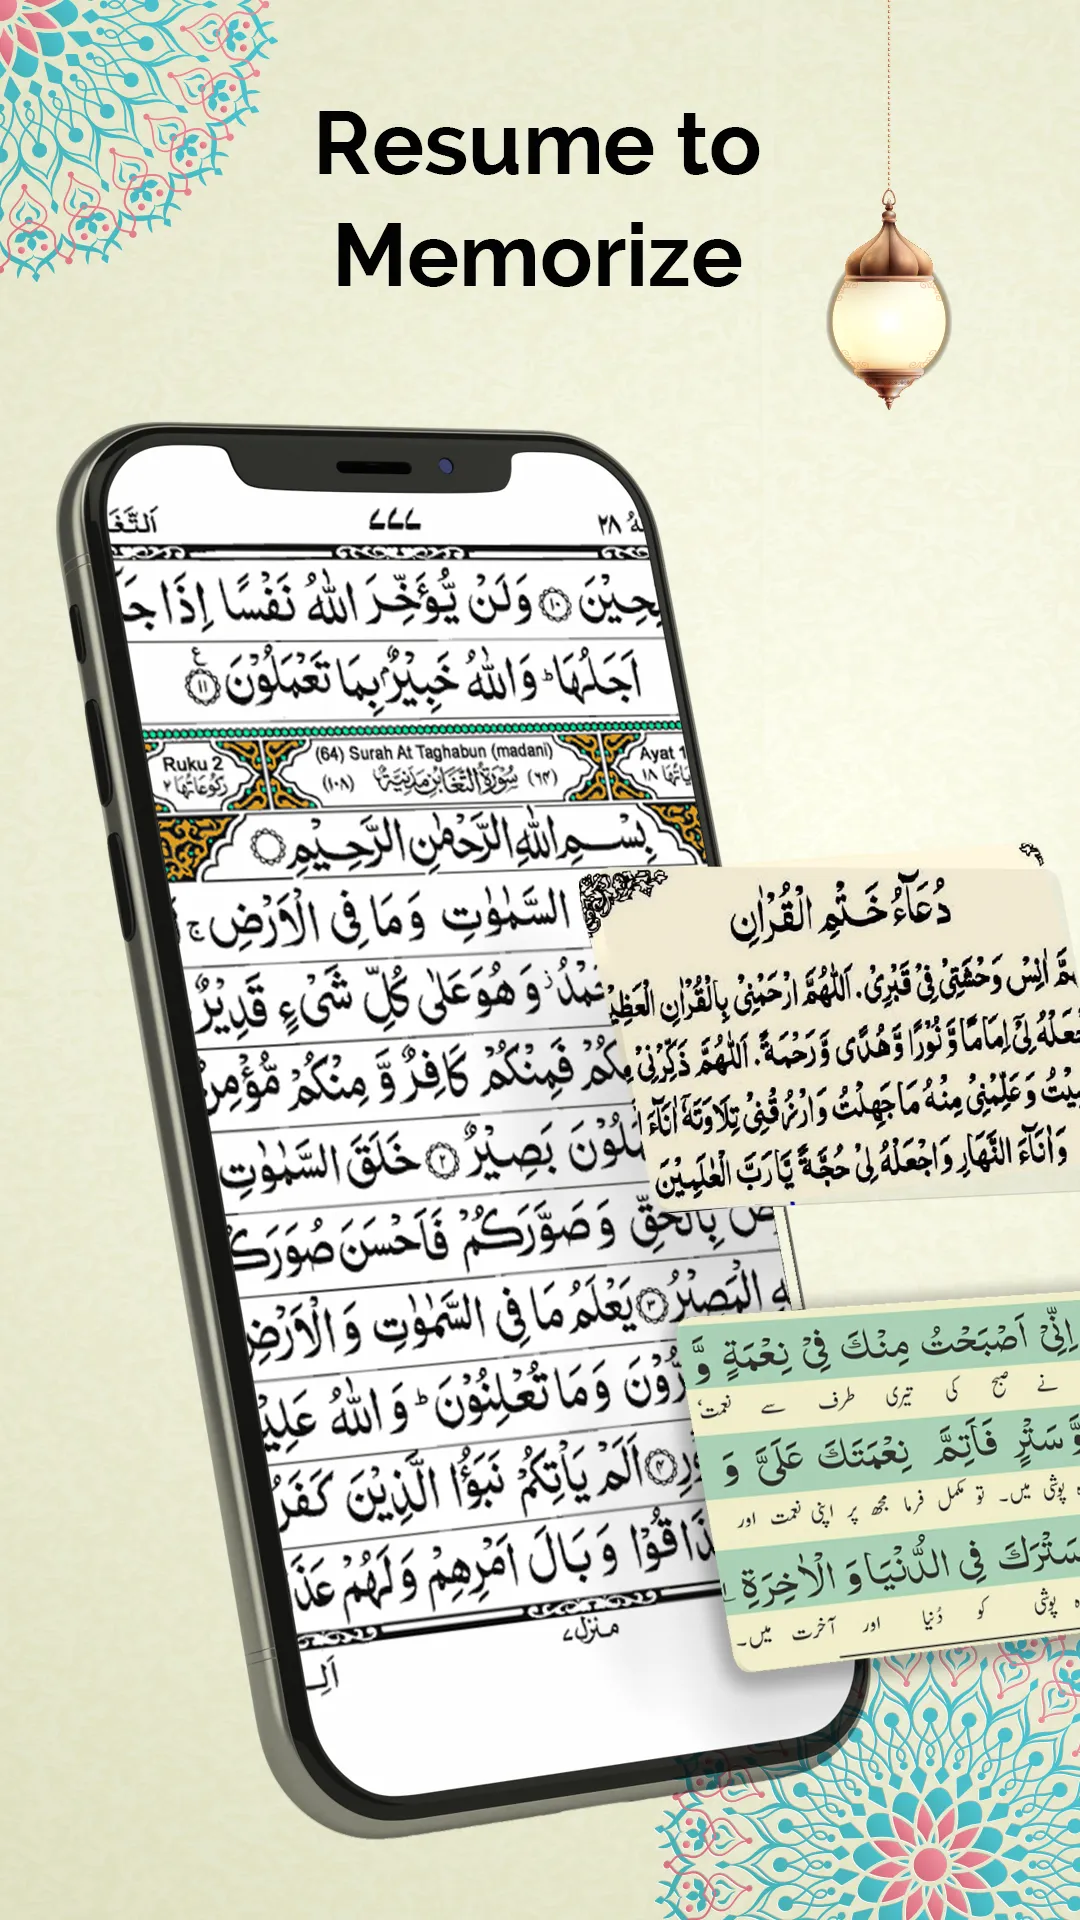 Resume to
Memorize
٧٧٧
٢٨
وَلَنْ يُّؤَخِّرَ اللّٰهُ نَفْسًا اِذَا
اَجَلُهَا ؕ وَاللّٰهُ خَبِيْرٌۢ بِمَا تَعْمَلُوْنَ ١١
Ruku 2
(64) Surah At Taghabun (madani)
Ayat 1
رُكُوْعَاتُهَا ٢
(١٠٨) سُوْرَةُ التَّغَابُنِ مَدَنِيَّةٌ (٦٤)
١٨
بِسْمِ اللّٰهِ الرَّحْمٰنِ الرَّحِيْمِ
السَّمٰوٰتِ وَمَا فِى الْاَرْضِ ج
وَهُوَ عَلٰى كُلِّ شَىْءٍ قَدِيْرٌ
فَمِنْكُمْ كَافِرٌ وَّمِنْكُمْ
بَصِيْرٌ ٢ خَلَقَ السَّمٰوٰتِ
بِالْحَقِّ وَصَوَّرَكُمْ فَاَحْسَنَ
الْمَصِيْرُ ٣ يَعْلَمُ مَا فِى السَّمٰوٰتِ وَالْاَرْضِ
وَمَا تُعْلِنُوْنَ ؕ وَاللّٰهُ
٤ اَلَمْ يَاْتِكُمْ نَبَؤُا الَّذِيْنَ
وَبَالَ اَمْرِهِمْ وَلَهُمْ
منزل ٧
دُعَآءُ خَتْمِ الْقُرْاٰنِ
اٰنِسْ وَحْشَتِىْ فِىْ قَبْرِىْ. اَللّٰهُمَّ ارْحَمْنِىْ بِالْقُرْاٰنِ
لِىْ اِمَامًا وَّ نُوْرًا وَّهُدًى وَّ رَحْمَةً. اَللّٰهُمَّ ذَكِّرْنِىْ
وَعَلِّمْنِىْ مِنْهُ مَا جَهِلْتُ وَارْزُقْنِىْ تِلَاوَتَهٗ اٰنَآءَ
وَاٰنَآءَ النَّهَارِ وَاجْعَلْهُ لِىْ حُجَّةً يَّا رَبَّ الْعٰلَمِيْنَ
اِنِّىْ اَصْبَحْتُ مِنْكَ فِىْ نِعْمَةٍ وَّ
نے صبح کی تیری طرف سے نعمت
وَّسَتْرٍ فَاَتِمَّ نِعْمَتَكَ عَلَىَّ وَ
پوشی میں۔ تو مکمل فرما مجھ پر اپنی نعمت اور
فِى الدُّنْيَا وَ الْاٰخِرَةِ
پوشی کو دُنیا اور آخرت میں۔